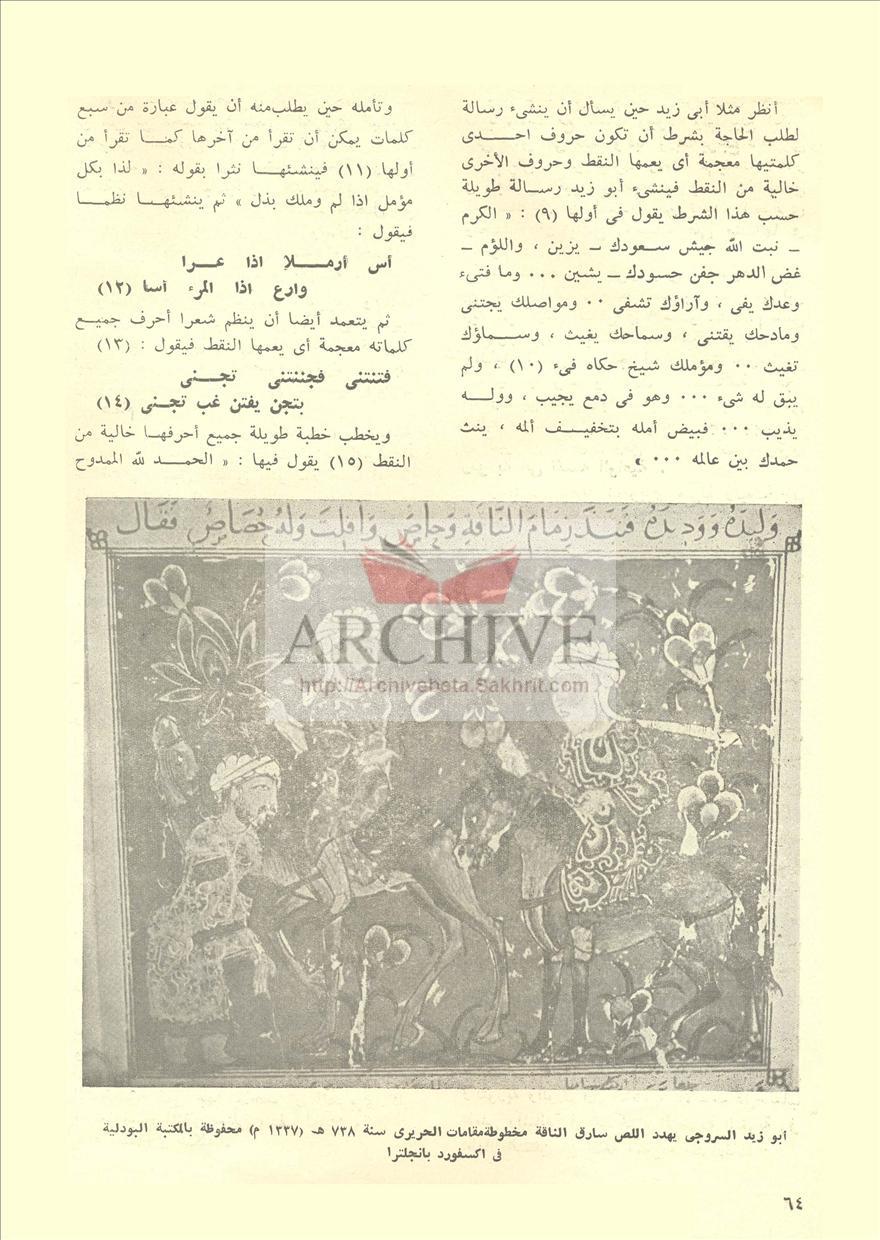 أنظر مثلا أبى زيد حين يسأل أن ينشىء رسالة
لطلب الحاجة بشرط أن تكون حروف احــدى
كلمتيها معجمة أى يعمها النقط وحروف الأخرى
خالية من النقط فينشىء أبو زيد رسالة طويلة
حسب هذا الشرط يقول فى أولها (٩) : « الكرم
ـ ثبت الله جيش سعودك ـ يزين ، واللؤم ـ
غض الدهر جفن حسودك ـ يشين ... وما فتىء
وعدك يفى ، وآراؤك تشفى ٠٠ ومواصلك يجتنى
ومادحك يقتنى ، وسماحك يغيث ، وسماؤك
تغيث ٠٠ ومؤملك شيخ حكاه فىء (١٠) ، ولم
يبق له شىء ٠٠٠ وهو فى دمع يجيب ، وولــه
يذيب ٠٠٠ فبيض أمله بتخفيف ألمه ، ينث
حمدك بين عالمه ٠٠٠ »
وتأمله حين يطلب منه أن يقول عبارة من سبع
كلمات يمكن أن تقرأ من آخرها كما تقرأ من
أولها (١١) فينشئها نثرا بقوله : « لذا بكل
مؤمل اذا لم وملك بذل » ثم ينشئها نظما
فيقول :
أس أرملا اذا عرا
وارع اذا المرء أسا (١٢)
ثم يتعمد أيضا أن ينظم شعرا أحرف جميع
كلماته معجمة أى يعمها النقط فيقول : (١٣)
فتنتنى فجننتنى تجــنى
بتجن يفتن غب تجنى (١٤)
ويخطب خطبة طويلة جميع أحرفها خالية من
النقط (١٥) يقول فيها : « الحمد لله الممدوح
زمام الناقة وحاص وافلت وله حصاص فقال
ARCHIVE
http://Archivebeta.Sakhrit.com
أبو زيد السروجى يهدد اللص سارق الناقة مخطوطة مقامات الحريرى سنة ٧٣٨ هـ (١٣٣٧ م) محفوظة بالمكتبة البودلية
فى اكسفورد بانجلترا
٦٤